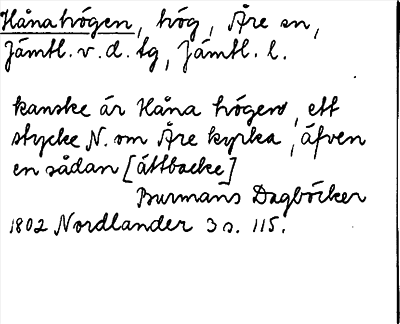 Hånahögen, hög, Åre sn,
Jämtl. v. d. tg, Jämtl. l.
kanske är Håna högen, ett
stycke N. om Åre kyrka, äfven
en sådan [ättbacke]
Burmans Dagböcker
1802 Nordlander 3 s. 115.